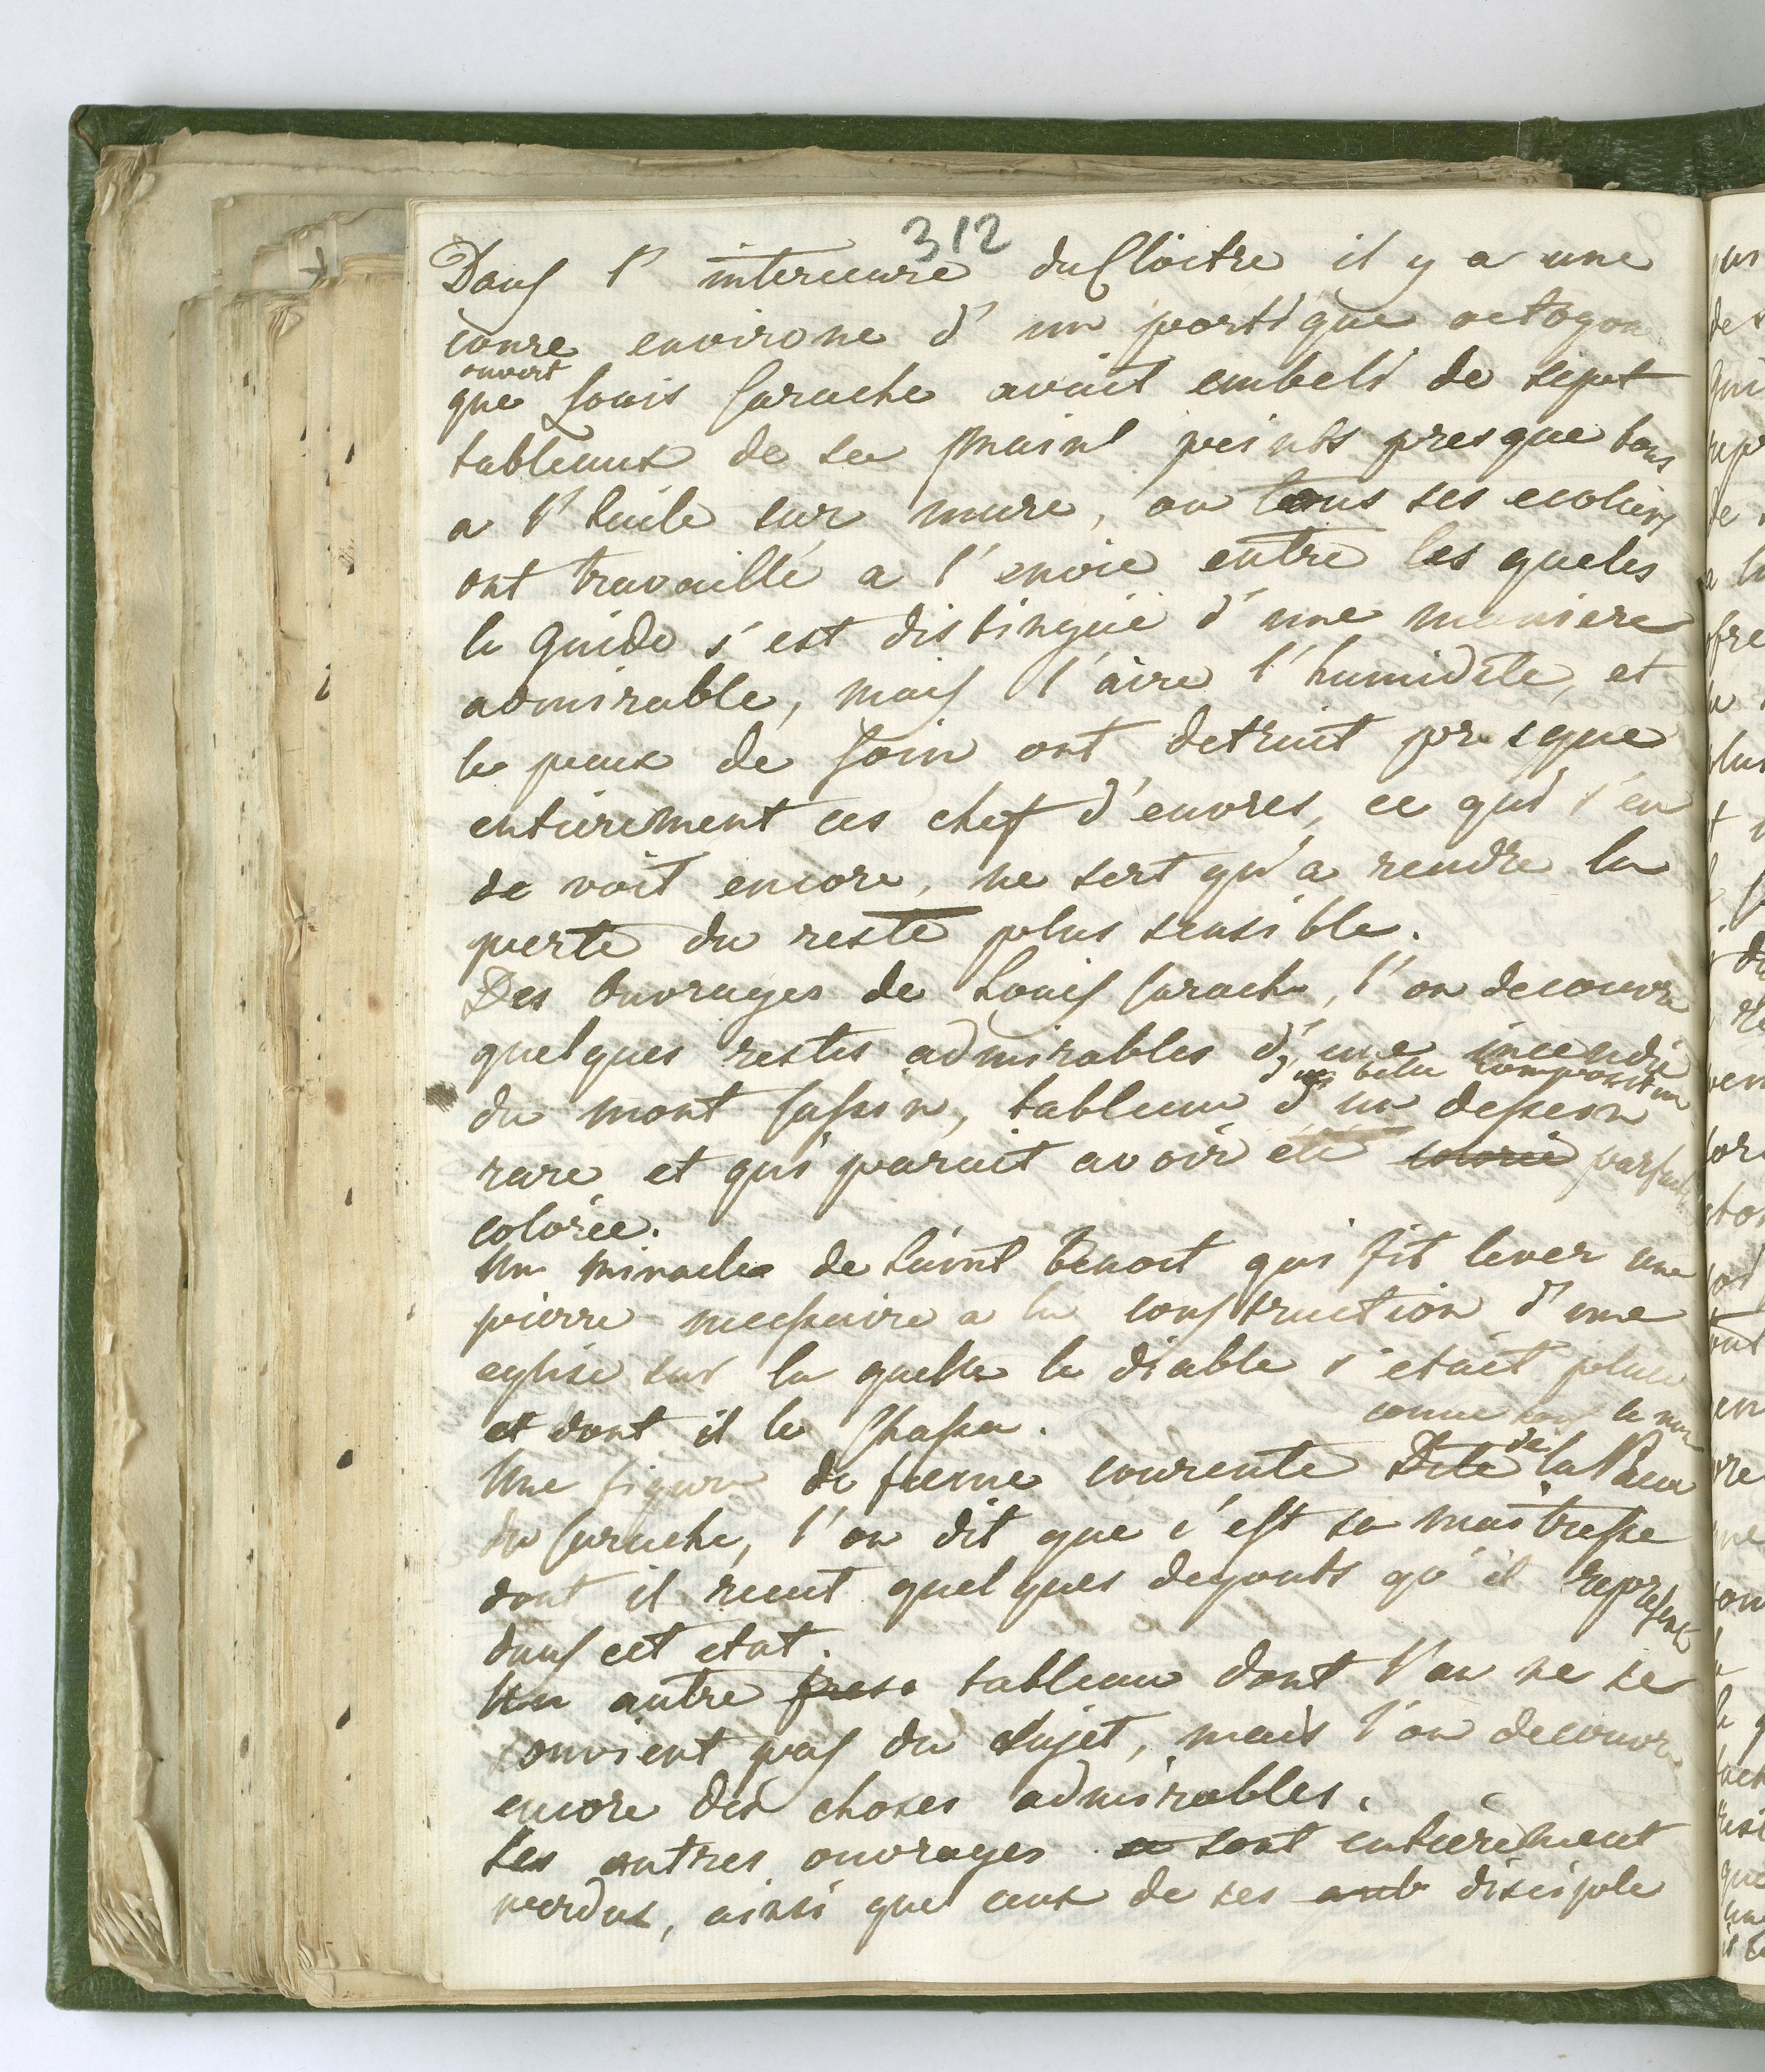 312
Dans l' interieure du Cloitre il y a une
coure environe d' un portique octogon
ouvert
que Louis Carache avait embeli de sept
tableaux de sa main peints presque tous
a l' huile sur mure, ou tous ses ecoliers
ont travaillé a l' envie entre les queles
le Guide s' est distingué d' une maniere
admirable, mais l' aire l' humidite, et
le peux de soin ont detruit presque
entierement ces chef d' euvres, ce qui s' en
de voit encore, ne sert qu' a rendre la
perte du reste plus sensible.
Des Ouvrages de Louis Carache, l' on decouvre
quelques restes admirables d' une incendie
d' une belle composition
du mont Cassin, tableau d' un dessein
rare et qui parait avoir été colorié
colorée.
Un miracle de Saint Benoit qui fit lever une
pierre necessaire a la construction d' une
eglise sur la quelle le diable s' etait placé
et dont il le chassa.
connue sous le nom
Une figure de feme courente Dite de la Peur
du Carache, l' on dit que c' est sa maitresse
dont il recut quelques degouts qu' il represente
dans cet etat.
Un autre freso tableau dont l' on ne se
souvient pas du sujet, mais l' on decouvre
encore des choses admirables.
Les autres ouvrages sont entierement
perdus, ainsi que ceux de ses disciple